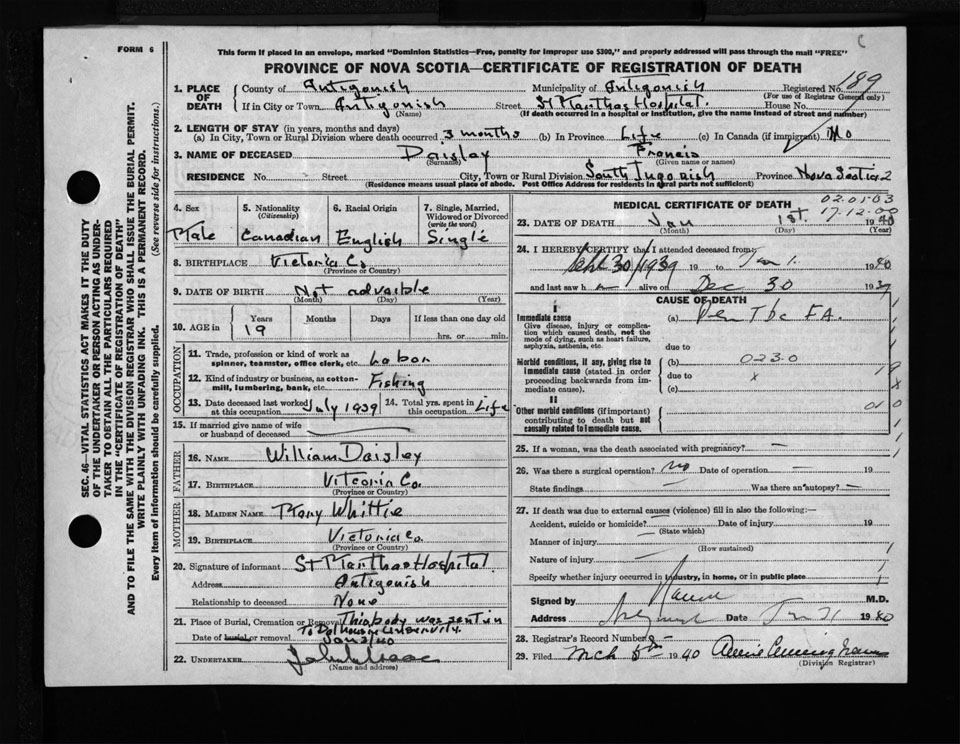 FORM 6
This form if placed in an envelope, marked "Dominion Statistics—Free, penalty for improper use $300," and properly addressed will pass through the mail "FREE"
PROVINCE OF NOVA SCOTIA—CERTIFICATE OF REGISTRATION OF DEATH
1. PLACE OF DEATH County of Antigonish Municipality of Antigonish Registered No. 189
(For use of Registrar General only)
If in City or Town Antigonish Street St Marthas Hospital. House No.
(Name) (If death occurred in a hospital or institution, give the name instead of street and number)
2. LENGTH OF STAY (in years, months and days)
(a) In City, Town or Rural Division where death occurred 3 months (b) In Province Life (c) In Canada (if immigrant) No
3. NAME OF DECEASED Daisley Francis
(Surname) (Given name or names)
RESIDENCE No Street City, Town or Rural Division South Ingonish Province Nova Scotia 2
(Residence means usual place of abode. Post Office Address for residents in rural parts not sufficient)
4. Sex Male
5. Nationality (Citizenship) Canadian
6. Racial Origin English
7. Single, Married, Widowed or Divorced (write the word) Single
8. BIRTHPLACE Victoria Co
(Province or Country)
9. DATE OF BIRTH Not advisible
(Month) (Day) (Year)
10. AGE in Years Months Days If less than one day old
19 hrs. or min.
OCCUPATION
11. Trade, profession or kind of work as spinner, teamster, office clerk, etc. Labor
12. Kind of industry or business, as cotton-mill, lumbering, bank, etc. Fishing
13. Date deceased last worked at this occupation July 1939 14. Total yrs. spent in this occupation Life
15. If married give name of wife or husband of deceased
FATHER
16. NAME William Daisley
17. BIRTHPLACE Vitcoria Co.
(Province or Country)
MOTHER
18. MAIDEN NAME Mary Whittie
19. BIRTHPLACE Victoria Co.
(Province or Country)
20. Signature of informant St Marthas Hospital
Address Antigonish
Relationship to deceased None
21. Place of Burial, Cremation or Removal This body was sent in
To Dalhousie University.
Date of burial or removal Jan 2/40
22. UNDERTAKER
(Name and address)
MEDICAL CERTIFICATE OF DEATH
02.01.03
17-12-00
23. DATE OF DEATH Jan 1st. 1940
(Month) (Day) (Year)
24. I HEREBY CERTIFY that I attended deceased from:
Sept 30/1939 19 to Jan 1. 1940
and last saw h alive on Dec 30 1939
CAUSE OF DEATH
I
Immediate cause
Give disease, injury or complication which caused death, not the mode of dying, such as heart failure, asphyxia, asthenia, etc.
(a) Pul Tbc F.A.
due to
Morbid conditions, if any, giving rise to immediate cause (stated in order proceeding backwards from immediate cause).
(b) 0230
due to x
(c)
II
Other morbid conditions (if important) contributing to death but not causally related to immediate cause.
010
25. If a woman, was the death associated with pregnancy? —
26. Was there a surgical operation? No Date of operation — 19
State findings — Was there an autopsy? —
27. If death was due to external causes (violence) fill in also the following:—
Accident, suicide or homicide? — Date of injury 19
(State which)
Manner of injury
(How sustained)
Nature of injury —
Specify whether injury occurred in industry, in home, or in public place
Signed by M.D.
Address Date Jan 21 1940
28. Registrar's Record Number 8
29. Filed Mch 8th 1940 Annie Cunningham
(Division Registrar)
SEC. 46—VITAL STATISTICS ACT MAKES IT THE DUTY
OF THE UNDERTAKER OR PERSON ACTING AS UNDER-
TAKER TO OBTAIN ALL THE PARTICULARS REQUIRED
IN THE "CERTIFICATE OF REGISTRATION OF DEATH"
AND TO FILE THE SAME WITH THE DIVISION REGISTRAR WHO SHALL ISSUE THE BURIAL PERMIT.
WRITE PLAINLY WITH UNFADING INK. THIS IS A PERMANENT RECORD.
Every item of information should be carefully supplied. (See reverse side for instructions.)